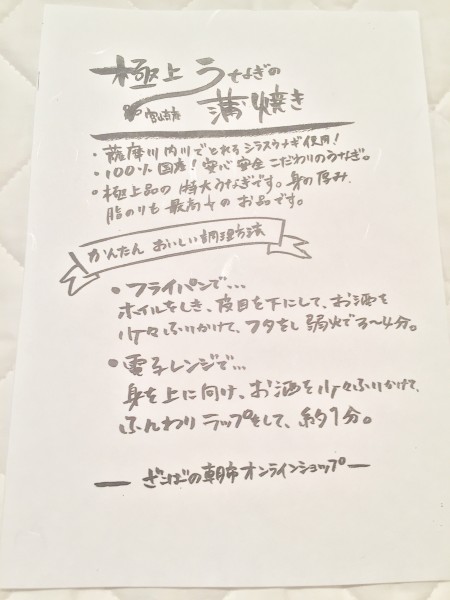 極上うなぎの
宮崎産 蒲焼き
・薩摩川内川でとれるシラスウナギ使用！
・100%国産！安心安全こだわりのうなぎ。
・極上品の特大うなぎです。身の厚み、
脂のりも最高のお品です。
かんたん おいしい調理方法
・フライパンで…
ホイルをしき、皮目を下にして、お酒を
少々ふりかけて、フタをし弱火で3〜4分。
・電子レンジで…
身を上に向け、お酒を少々ふりかけて、
ふんわりラップをして、約1分。
― ざこばの朝市オンラインショップ ―